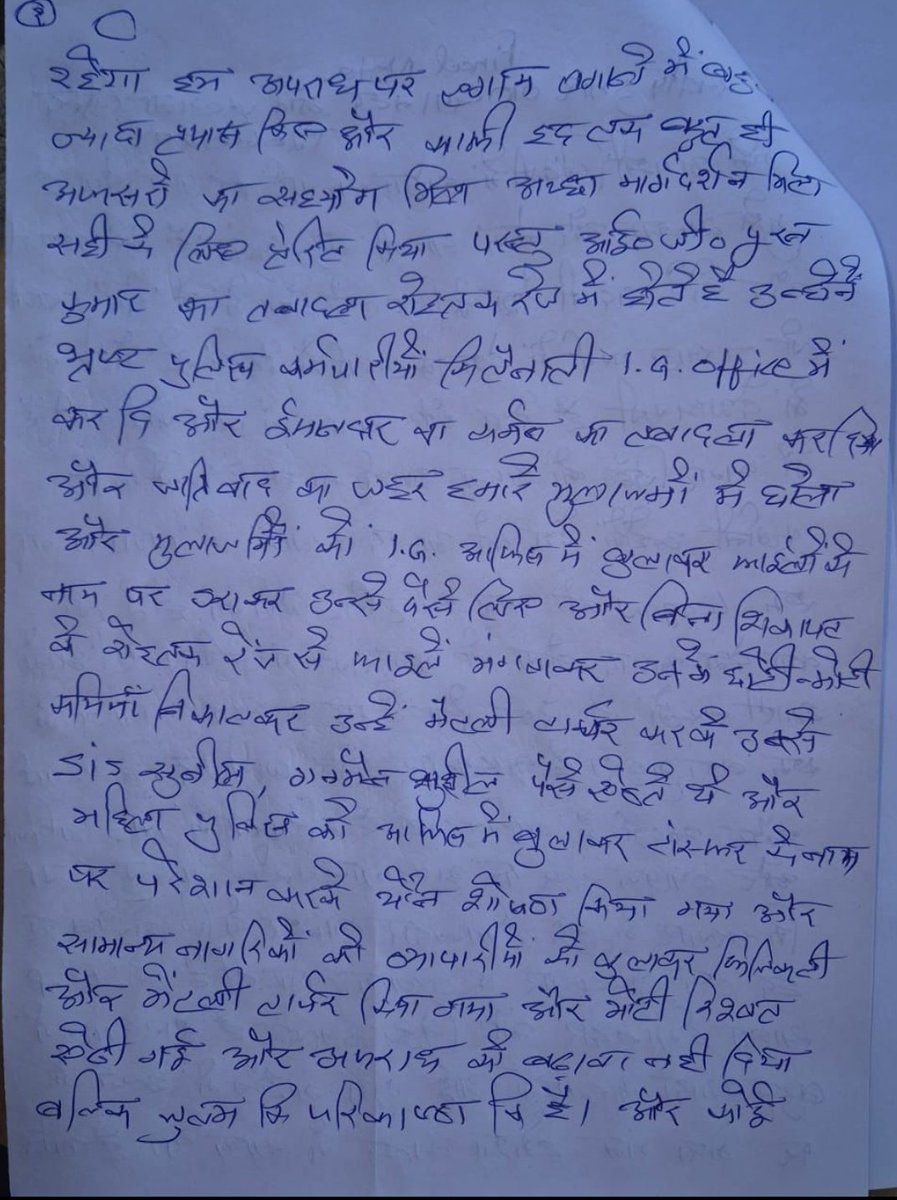 २
रहेगा हम अपराध पर लगाम लगाने में बहु.
ज्यादा प्रयास किए और काफी हद तक बहुत ही
अफसरो का सहयोग मिला अच्छा मार्गदर्शन मिला
सही के लिए प्रेरित किया परन्तु आई०जी० पुरन
कुमार का तबादला रोहतक रेंज में होते है उन्होने
भ्रष्ट पुलिस कर्मचारीयों कि तैनाती I.G. office में
कर दि और ईमानदार का तबादला कर दिया
और जातिवाद का जहर हमारे मुलाजमों मे घोला
और मुलाजमों को I.G. आफिस में बुलाकर फाईलों के
नाम पर डराकर उनसे पैसे लिए और बिना शिकायत
के रोहतक रेंज से फाइलें मंगवाकर उनके छोटी-मोटी
कमियां निकालकर उन्हें मैंटली टार्चर करके उनसे
sis सुनील, गनमैन सुशील पैसे ऐंठते थे और
महिला पुलिस को आफिस में बुलाकर ट्रांसफर के नाम
पर परेशान करके यौन शोषण किया गया और
सामान्य नागरिकों को व्यापारीयों को बुलाकर फिजिकली
और मैंटली टार्चर किया गया और मोटी रिश्वत
ऐंठी गई और अपराध को बढावा नही दिया
बल्कि जुल्म कि पराकाष्ठा कि है। और कोई